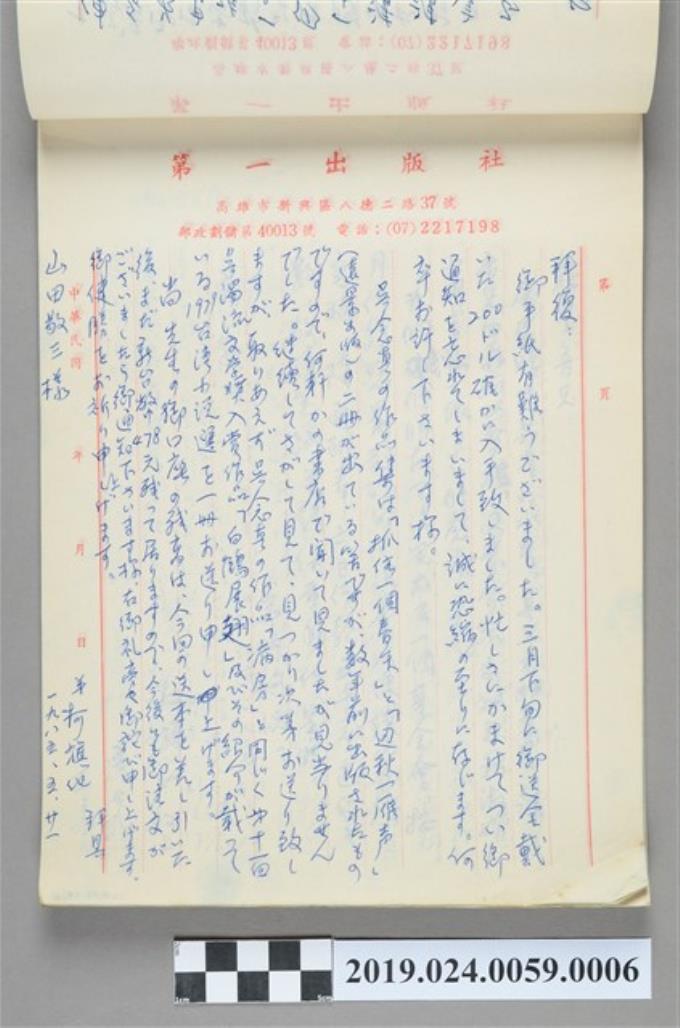 第一出版社
高雄市新興區八德二路37號
郵政劃儲第40013號 電話:(07)2217198
第 頁
拝復:
御手紙有難うございました。三月下旬に御送金戴
いた200ドル確かに入手致しました。忙しさにかまけてつい御
通知を忘れてしまいまして、誠に恐縮の至りに存じます。何
卒お許し下さいます様。
呉念真の作品集は「抓住一個春天」と「辺秋一雁声」
(遠景出版)の二冊が出ている筈ですが、数年前に出版されたもの
ですので、何軒かの書店で聞いて見ましたが見当りません
でした。継續してさがして見て、見つかり次第お送り致し
ますが、取りあえず呉念真の作品「病房」と同じく第十一回
呉濁流文学奨入賞作品「白鶴展翅」及びその紹介が載って
いる1979台湾小説選を一冊お送り申し上げます。
尚 先生の御口座の残高は、今回の送本を差し引いた
後まだ新台幣478元残って居りますので、今後とも御注文が
ございましたら御通知下さいます様、右御礼旁々御詫び申し上げます。
御健勝をお祈り申し上げます。
中華民國 年 月 日
弟 柯旗化 拝具
一九八五、五、廿一
山田敬三様
2019.024.0059.0006